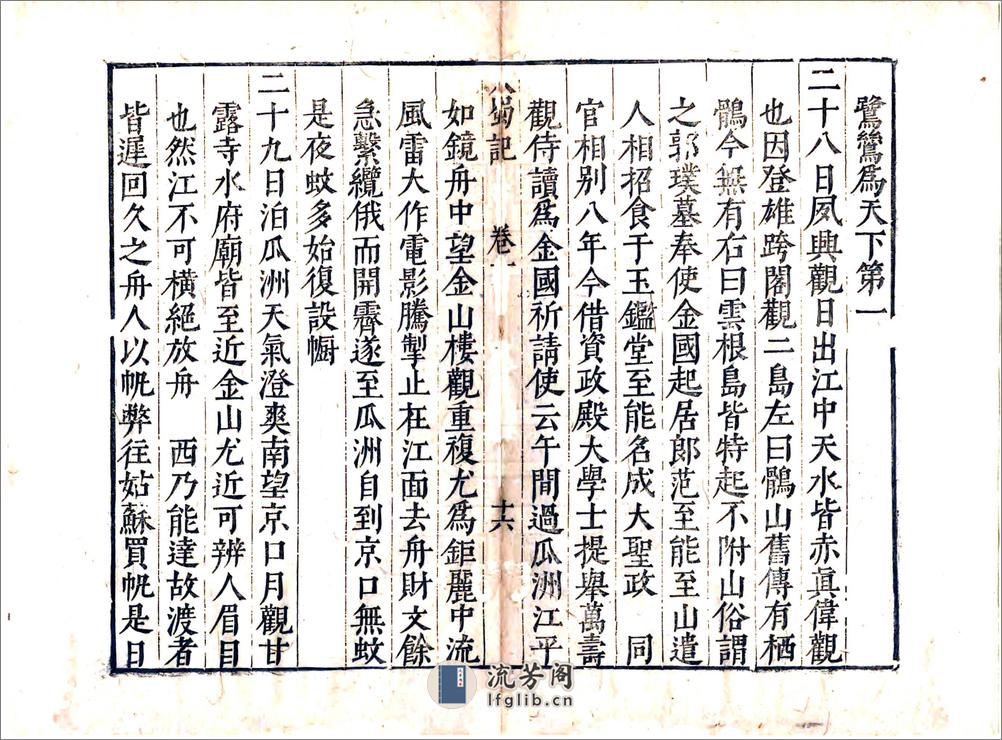 鷺鷥爲天下第一
二十八日夙興觀日出江中天水皆赤眞偉觀
也因登雄跨閣觀二島左曰鶻山舊傳有栖
鶻今無有右曰雲根島皆特起不附山俗謂
之郭璞墓奉使金國起居郎范至能至山遣
人相招食于玉鑑堂至能名成大聖政 同
官相別八年今借資政殿大學士提舉萬壽
觀侍讀爲金國祈請使云午間過瓜洲江平
入蜀記 卷一 十六
如鏡舟中望金山樓觀重複尤爲鉅麗中流
風雷大作電影騰掣止在江面去舟財丈餘
急繫纜俄而開霽遂至瓜洲自到京口無蚊
是夜蚊多始復設幮
二十九日泊瓜洲天氣澄爽南望京口月觀甘
露寺水府廟皆至近金山尤近可辨人眉目
也然江不可橫絕放舟 西乃能達故渡者
皆遲回久之舟人以帆弊往姑蘇買帆是日
流芳阁
lfglib.cn